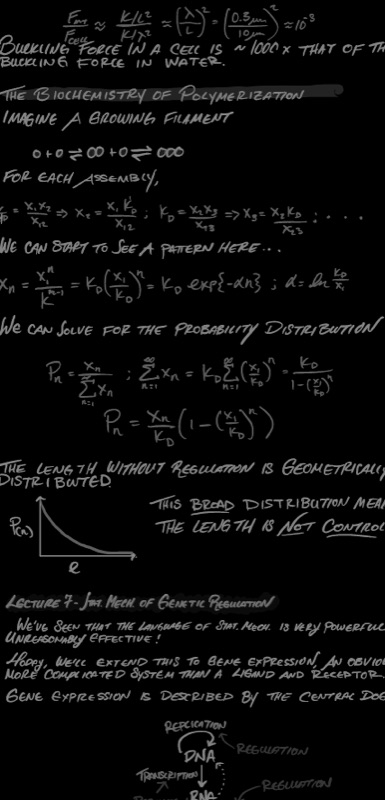 F_ / F_cell ≈ K/L² / K/λ² ≈ (λ/L)² = (0.3µm / 10µm)² ≈ 10⁻³
BUCKLING FORCE IN A CELL IS ~ 1000 x THAT OF TH
BUCKLING FORCE IN WATER.
THE BIOCHEMISTRY OF POLYMERIZATION
IMAGINE A GROWING FILAMENT
o + o ⇌ oo + o ⇌ ooo
FOR EACH ASSEMBLY,
= x₁x₂ / x₁₂ ⇒ x₂ = x₁K_D / x₁₂ ; K_D = x₁x₂ / x₂₃ ⇒ x₃ = x₂K_D / x₂₃ ; . . . .
WE CAN START TO SEE A PATERN HERE...
x_n = x₁ⁿ / Kⁿ⁻¹ = K_D(x₁/K_D)ⁿ = K_D exp{-αn} ; α = ln K_D/x₁
WE CAN SOLVE FOR THE PROBABILITY DISTRIBUTION
P_n = x_n / Σ_{n=1}^∞ x_n ; Σ_{n=1}^∞ x_n = K_D Σ_{n=1}^∞ (x₁/K_D)ⁿ = K_D / 1-(x₁/K_D)ⁿ
P_n = x_n/K_D (1-(x₁/K_D)ⁿ)
THE LENGTH WITHOUT REGULATION IS GEOMETRICALL
DISTRIBUTED.
THIS BROAD DISTRIBUTION MEA
P(n)
THE LENGTH IS NOT CONTROL
l
LECTURE 7- STAT. MECH. OF GENETIC REGULATION
WE'VE SEEN THAT THE LANGUAGE OF STAT. MECH. IS VERY POWERFUL
UNREASONABLY EFFECTIVE!
TODAY, WE'LL EXTEND THIS TO GENE EXPRESSION, AN OBVIO
MORE COMPLICATED SYSTEM THAN A LIGAND AND RECEPTOR.
GENE EXPRESSION IS DESCRIBED BY THE CENTRAL DOG
REPLICATION
DNA
REGULATION
TRANSCRIPTION
REGULATION
RNA